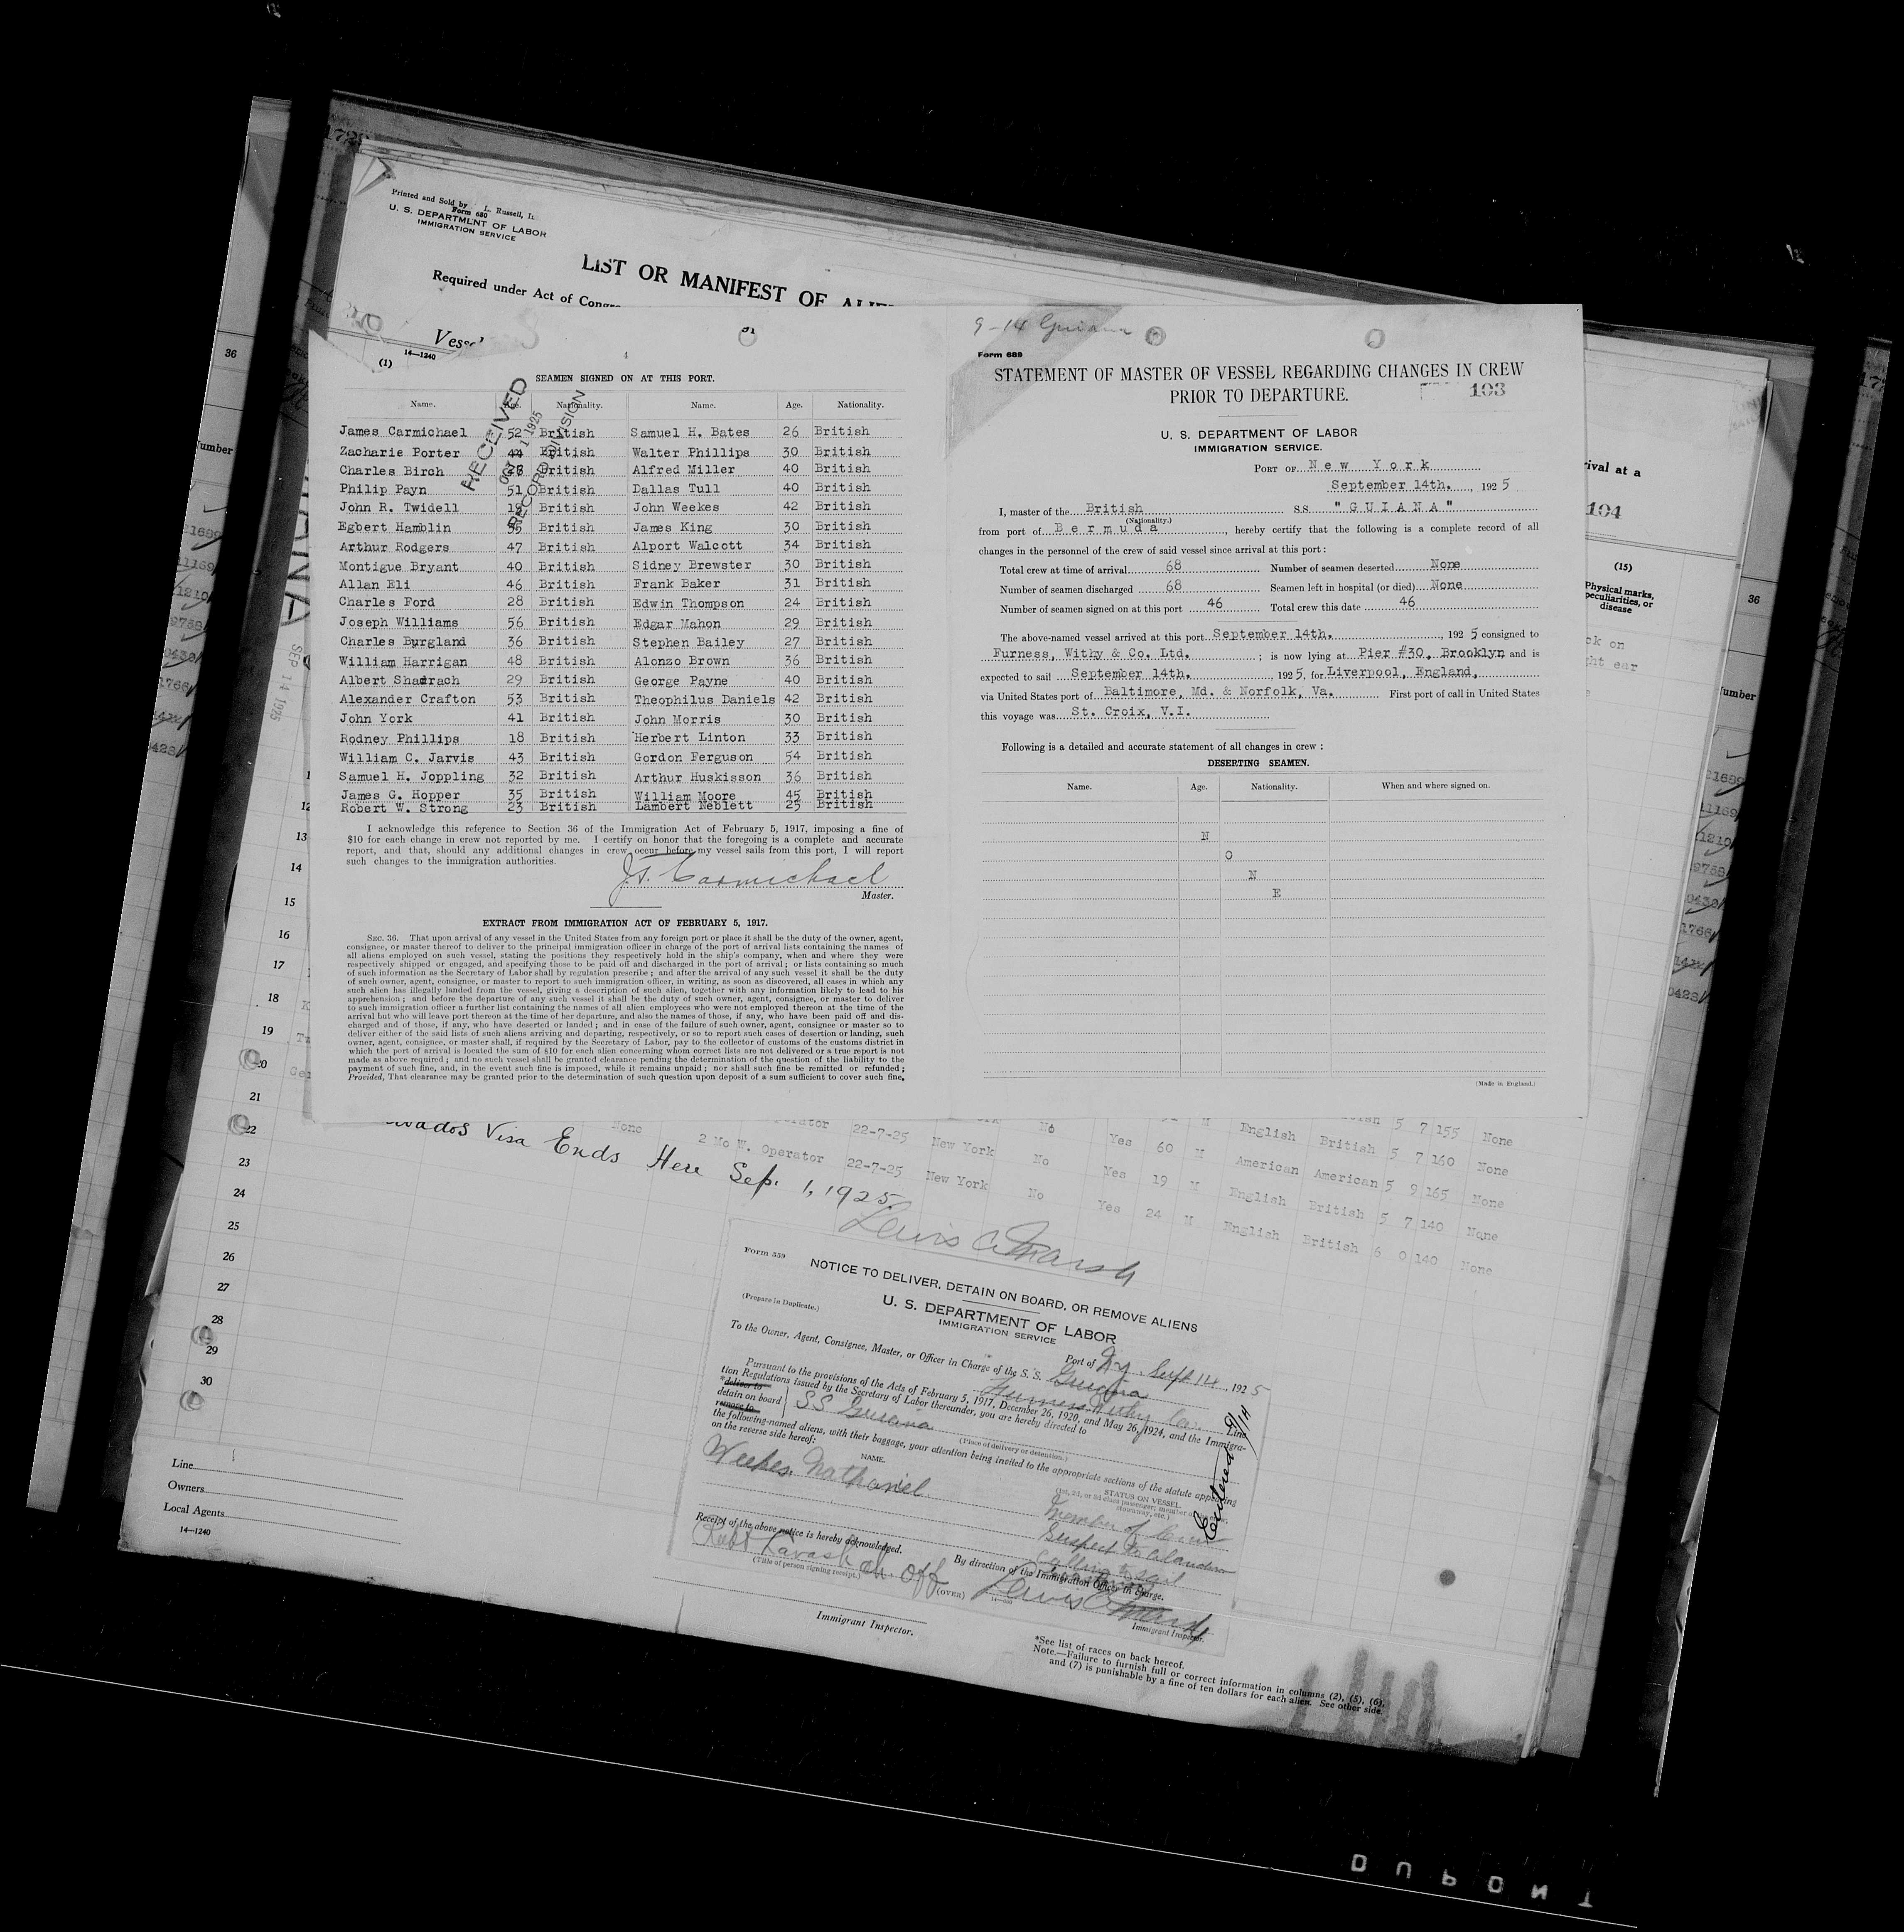 Printed and Sold by L. Russell,
Form 680
U. S. DEPARTMENT OF LABOR
IMMIGRATION SERVICE
LIST OR MANIFEST OF ALIE
Required under Act of Congre
Vessel
14—1240
(1)
SEAMEN SIGNED ON AT THIS PORT.
RECEIVED
1 1925
RECORD DIVISION
Name. Age. Nationality. Name. Age. Nationality.
James Carmichael 52 British Samuel H. Bates 26 British
Zacharie Porter 44 British Walter Phillips 30 British
Charles Birch British Alfred Miller 40 British
Philip Payn 51 British Dallas Tull 40 British
John R. Twidell British John Weekes 42 British
Egbert Hamblin British James King 30 British
Arthur Rodgers 47 British Alport Walcott 34 British
Montigue Bryant 40 British Sidney Brewster 30 British
Allan Eli 46 British Frank Baker 31 British
Charles Ford 28 British Edwin Thompson 24 British
Joseph Williams 56 British Edgar Mahon 29 British
Charles Burgland 36 British Stephen Bailey 27 British
William Harrigan 48 British Alonzo Brown 36 British
Albert Shadrach 29 British George Payne 40 British
Alexander Crafton 53 British Theophilus Daniels 42 British
John York 41 British John Morris 30 British
Rodney Phillips 18 British Herbert Linton 33 British
William C. Jarvis 43 British Gordon Ferguson 54 British
Samuel H. Joppling 32 British Arthur Huskisson 36 British
James G. Hopper 35 British William Moore 45 British
Robert W. Strong 23 British Lambert Neblett 25 British
I acknowledge this reference to Section 36 of the Immigration Act of February 5, 1917, imposing a fine of
$10 for each change in crew not reported by me. I certify on honor that the foregoing is a complete and accurate
report, and that, should any additional changes in crew occur before my vessel sails from this port, I will report
such changes to the immigration authorities.
J.T. Carmichael
Master.
EXTRACT FROM IMMIGRATION ACT OF FEBRUARY 5, 1917.
SEC. 36. That upon arrival of any vessel in the United States from any foreign port or place it shall be the duty of the owner, agent,
consignee, or master thereof to deliver to the principal immigration officer in charge of the port of arrival lists containing the names of
all aliens employed on such vessel, stating the positions they respectively hold in the ship's company, when and where they were
respectively shipped or engaged, and specifying those to be paid off and discharged in the port of arrival; or lists containing so much
of such information as the Secretary of Labor shall by regulation prescribe; and after the arrival of any such vessel it shall be the duty
of such owner, agent, consignee, or master to report to such immigration officer, in writing, as soon as discovered, all cases in which any
such alien has illegally landed from the vessel, giving a description of such alien, together with any information likely to lead to his
apprehension; and before the departure of any such vessel it shall be the duty of such owner, agent, consignee, or master to deliver
to such immigration officer a further list containing the names of all alien employees who were not employed thereon at the time of the
arrival but who will leave port thereon at the time of her departure, and also the names of those, if any, who have been paid off and dis-
charged and of those, if any, who have deserted or landed; and in case of the failure of such owner, agent, consignee or master so to
deliver either of the said lists of such aliens arriving and departing, respectively, or so to report such cases of desertion or landing, such
owner, agent, consignee, or master shall, if required by the Secretary of Labor, pay to the collector of customs of the customs district in
which the port of arrival is located the sum of $10 for each alien concerning whom correct lists are not delivered or a true report is not
made as above required; and no such vessel shall be granted clearance pending the determination of the question of the liability to the
payment of such fine, and, in the event such fine is imposed, while it remains unpaid; nor shall such fine be remitted or refunded;
Provided, That clearance may be granted prior to the determination of such question upon deposit of a sum sufficient to cover such fine.
9-14 Guiana
Form 689
STATEMENT OF MASTER OF VESSEL REGARDING CHANGES IN CREW
PRIOR TO DEPARTURE.
103
U. S. DEPARTMENT OF LABOR
IMMIGRATION SERVICE.
PORT OF New York
September 14th. , 1925
I, master of the British SS "GUIANA"
(Nationality.)
from port of Bermuda, hereby certify that the following is a complete record of all
changes in the personnel of the crew of said vessel since arrival at this port:
Total crew at time of arrival 68 Number of seamen deserted None
Number of seamen discharged 68 Seamen left in hospital (or died) None
Number of seamen signed on at this port 46 Total crew this date 46
The above-named vessel arrived at this port September 14th. , 1925 consigned to
Furness, Withy & Co. Ltd. ; is now lying at Pier #30, Brooklyn and is
expected to sail September 14th. , 1925, for Liverpool, England,
via United States port of Baltimore, Md. & Norfolk, Va. First port of call in United States
this voyage was St. Croix, V.I.
Following is a detailed and accurate statement of all changes in crew:
DESERTING SEAMEN.
Name. Age. Nationality. When and where signed on.
N
O
N
E
(Made in England.)
rival at a
104
(15)
Physical marks,
peculiarities, or
disease
ck on
ht ear
36
umber
36
umber
SEP 14 1925
13
14
15
16
17
18
19
20
21
22
23
24
25
26
27
28
29
30
English British 5 7 155 None
None 22-7-25 New York No Yes 60 M American American 5 9 165 None
2 Mo W. Operator 22-7-25 New York No Yes 19 M English British 5 7 140 None
Yes 24 M English British 6 0 140 None
Visa Ends Here Sep. 1, 1925
Lewis C. Marsh
Form 559
NOTICE TO DELIVER, DETAIN ON BOARD, OR REMOVE ALIENS
(Prepare in Duplicate.)
U. S. DEPARTMENT OF LABOR
IMMIGRATION SERVICE
Port of N.Y. Sept 14, 1925
To the Owner, Agent, Consignee, Master, or Officer in Charge of the S. S. Guiana
Furness Withy Line
Pursuant to the provisions of the Acts of February 5, 1917, December 26, 1920, and May 26, 1924, and the Immigra-
tion Regulations issued by the Secretary of Labor thereunder, you are hereby directed to
*deliver to
detain on board SS Guiana
remove to
(Place of delivery or detention.)
the following-named aliens, with their baggage, your attention being invited to the appropriate sections of the statute appearing
on the reverse side hereof:
NAME. STATUS ON VESSEL.
Weekes, Nathaniel Member of Crew
Receipt of the above notice is hereby acknowledged.
Ch. Off
(Title of person signing receipt.)
(OVER)
By direction of the Immigration Officer in Charge.
Lewis C. Marsh
Immigrant Inspector.
Line
Owners
Local Agents
14—1240
Immigrant Inspector.
*See list of races on back hereof.
Note.—Failure to furnish full or correct information in columns (2), (5), (6),
and (7) is punishable by a fine of ten dollars for each alien. See other side.
DUPONT